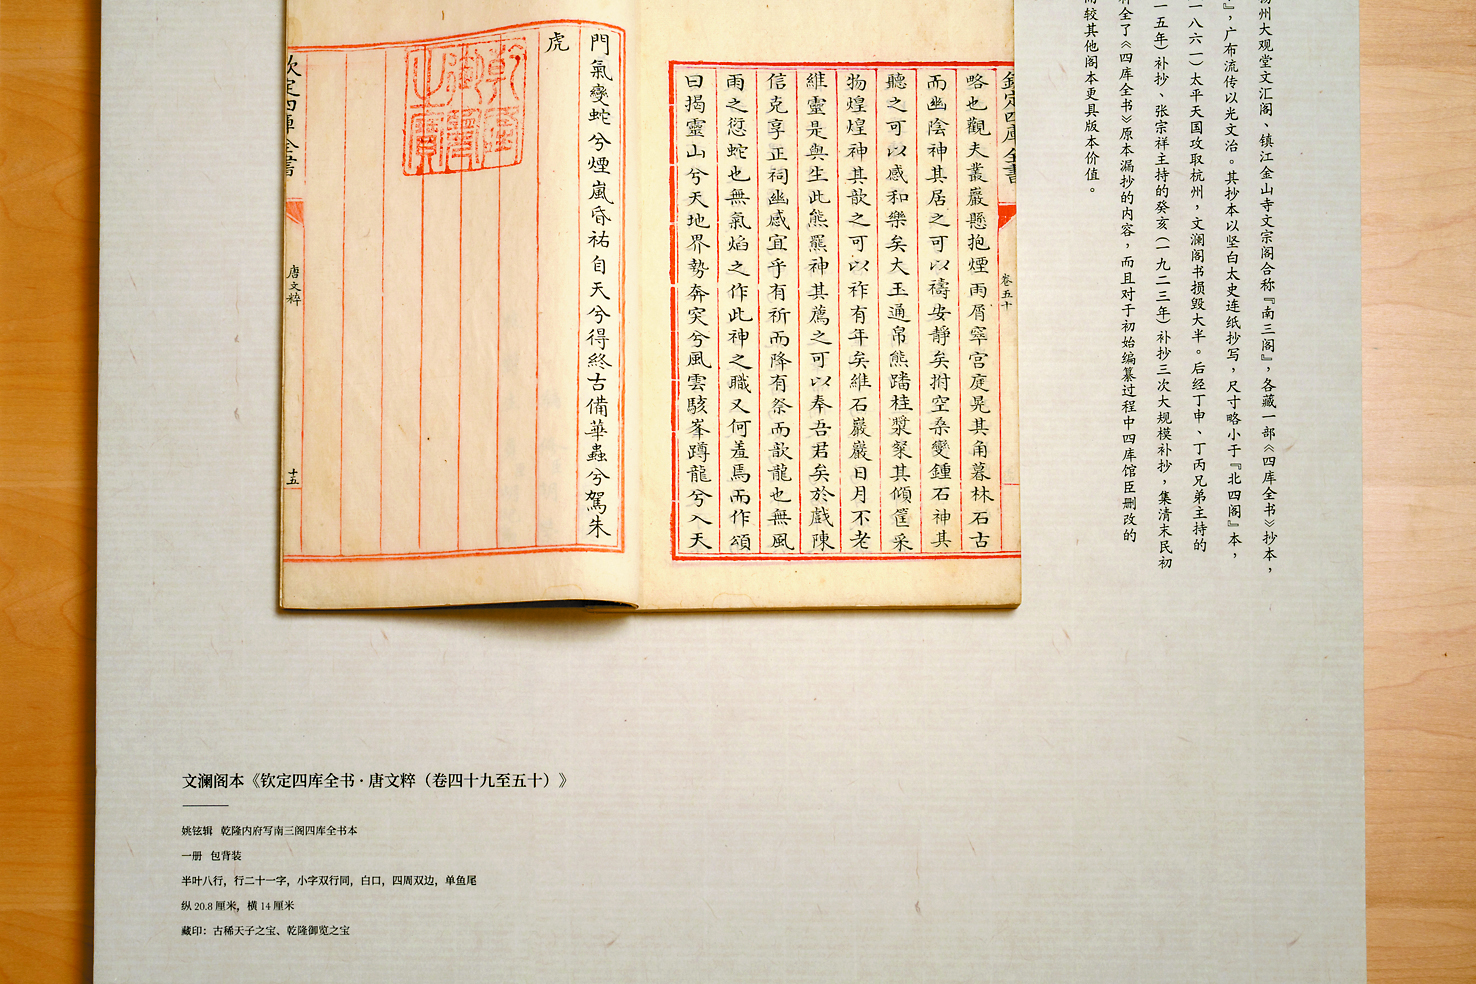 扬州大观堂文汇阁、镇江金山寺文宗阁合称『南三阁』，各藏一部《四库全书》抄本，
』，广布流传以光文治。其抄本以坚白太史连纸抄写，尺寸略小于『北四阁』本，
一八六一）太平天国攻取杭州，文澜阁书损毁大半。后经丁申、丁丙兄弟主持的
一五年）补抄、张宗祥主持的癸亥（一九二三年）补抄三次大规模补抄，集清末民初
补全了《四库全书》原本漏抄的内容，而且对于初始编纂过程中四库馆臣删改的
而较其他阁本更具版本价值。
欽定四庫全書
卷五十
略也觀夫叢巖懸抱煙雨屑窣宫庭晃其角暮林石古
而幽陰神其居之可以禱安靜矣拊空桑變鍾石神其
聽之可以感和樂矣大玉通帛熊蹯桂漿粢其傾筐采
物煌煌神其歆之可以祚有年矣維石巖巖日月不老
維靈是與生此熊羆神其薦之可以奉吾君矣於戲陳
信克享正祠幽感宜乎有祈而降有祭而歆龍也無風
雨之愆蛇也無氣焰之作此神之職又何羞焉而作頌
曰揭靈山兮天地界勢奔突兮風雲駭峯蹲龍兮入天
門氣變蛇兮煙嵐昏祐自天兮得終古備華蟲兮駕朱
虎
乾隆御覽之寶
欽定四庫全書
唐文粹
十五
文澜阁本《钦定四库全书·唐文粹（卷四十九至五十）》
姚铉辑 乾隆内府写南三阁四库全书本
一册 包背装
半叶八行，行二十一字，小字双行同，白口，四周双边，单鱼尾
纵 20.8 厘米，横 14 厘米
藏印：古稀天子之宝、乾隆御览之宝